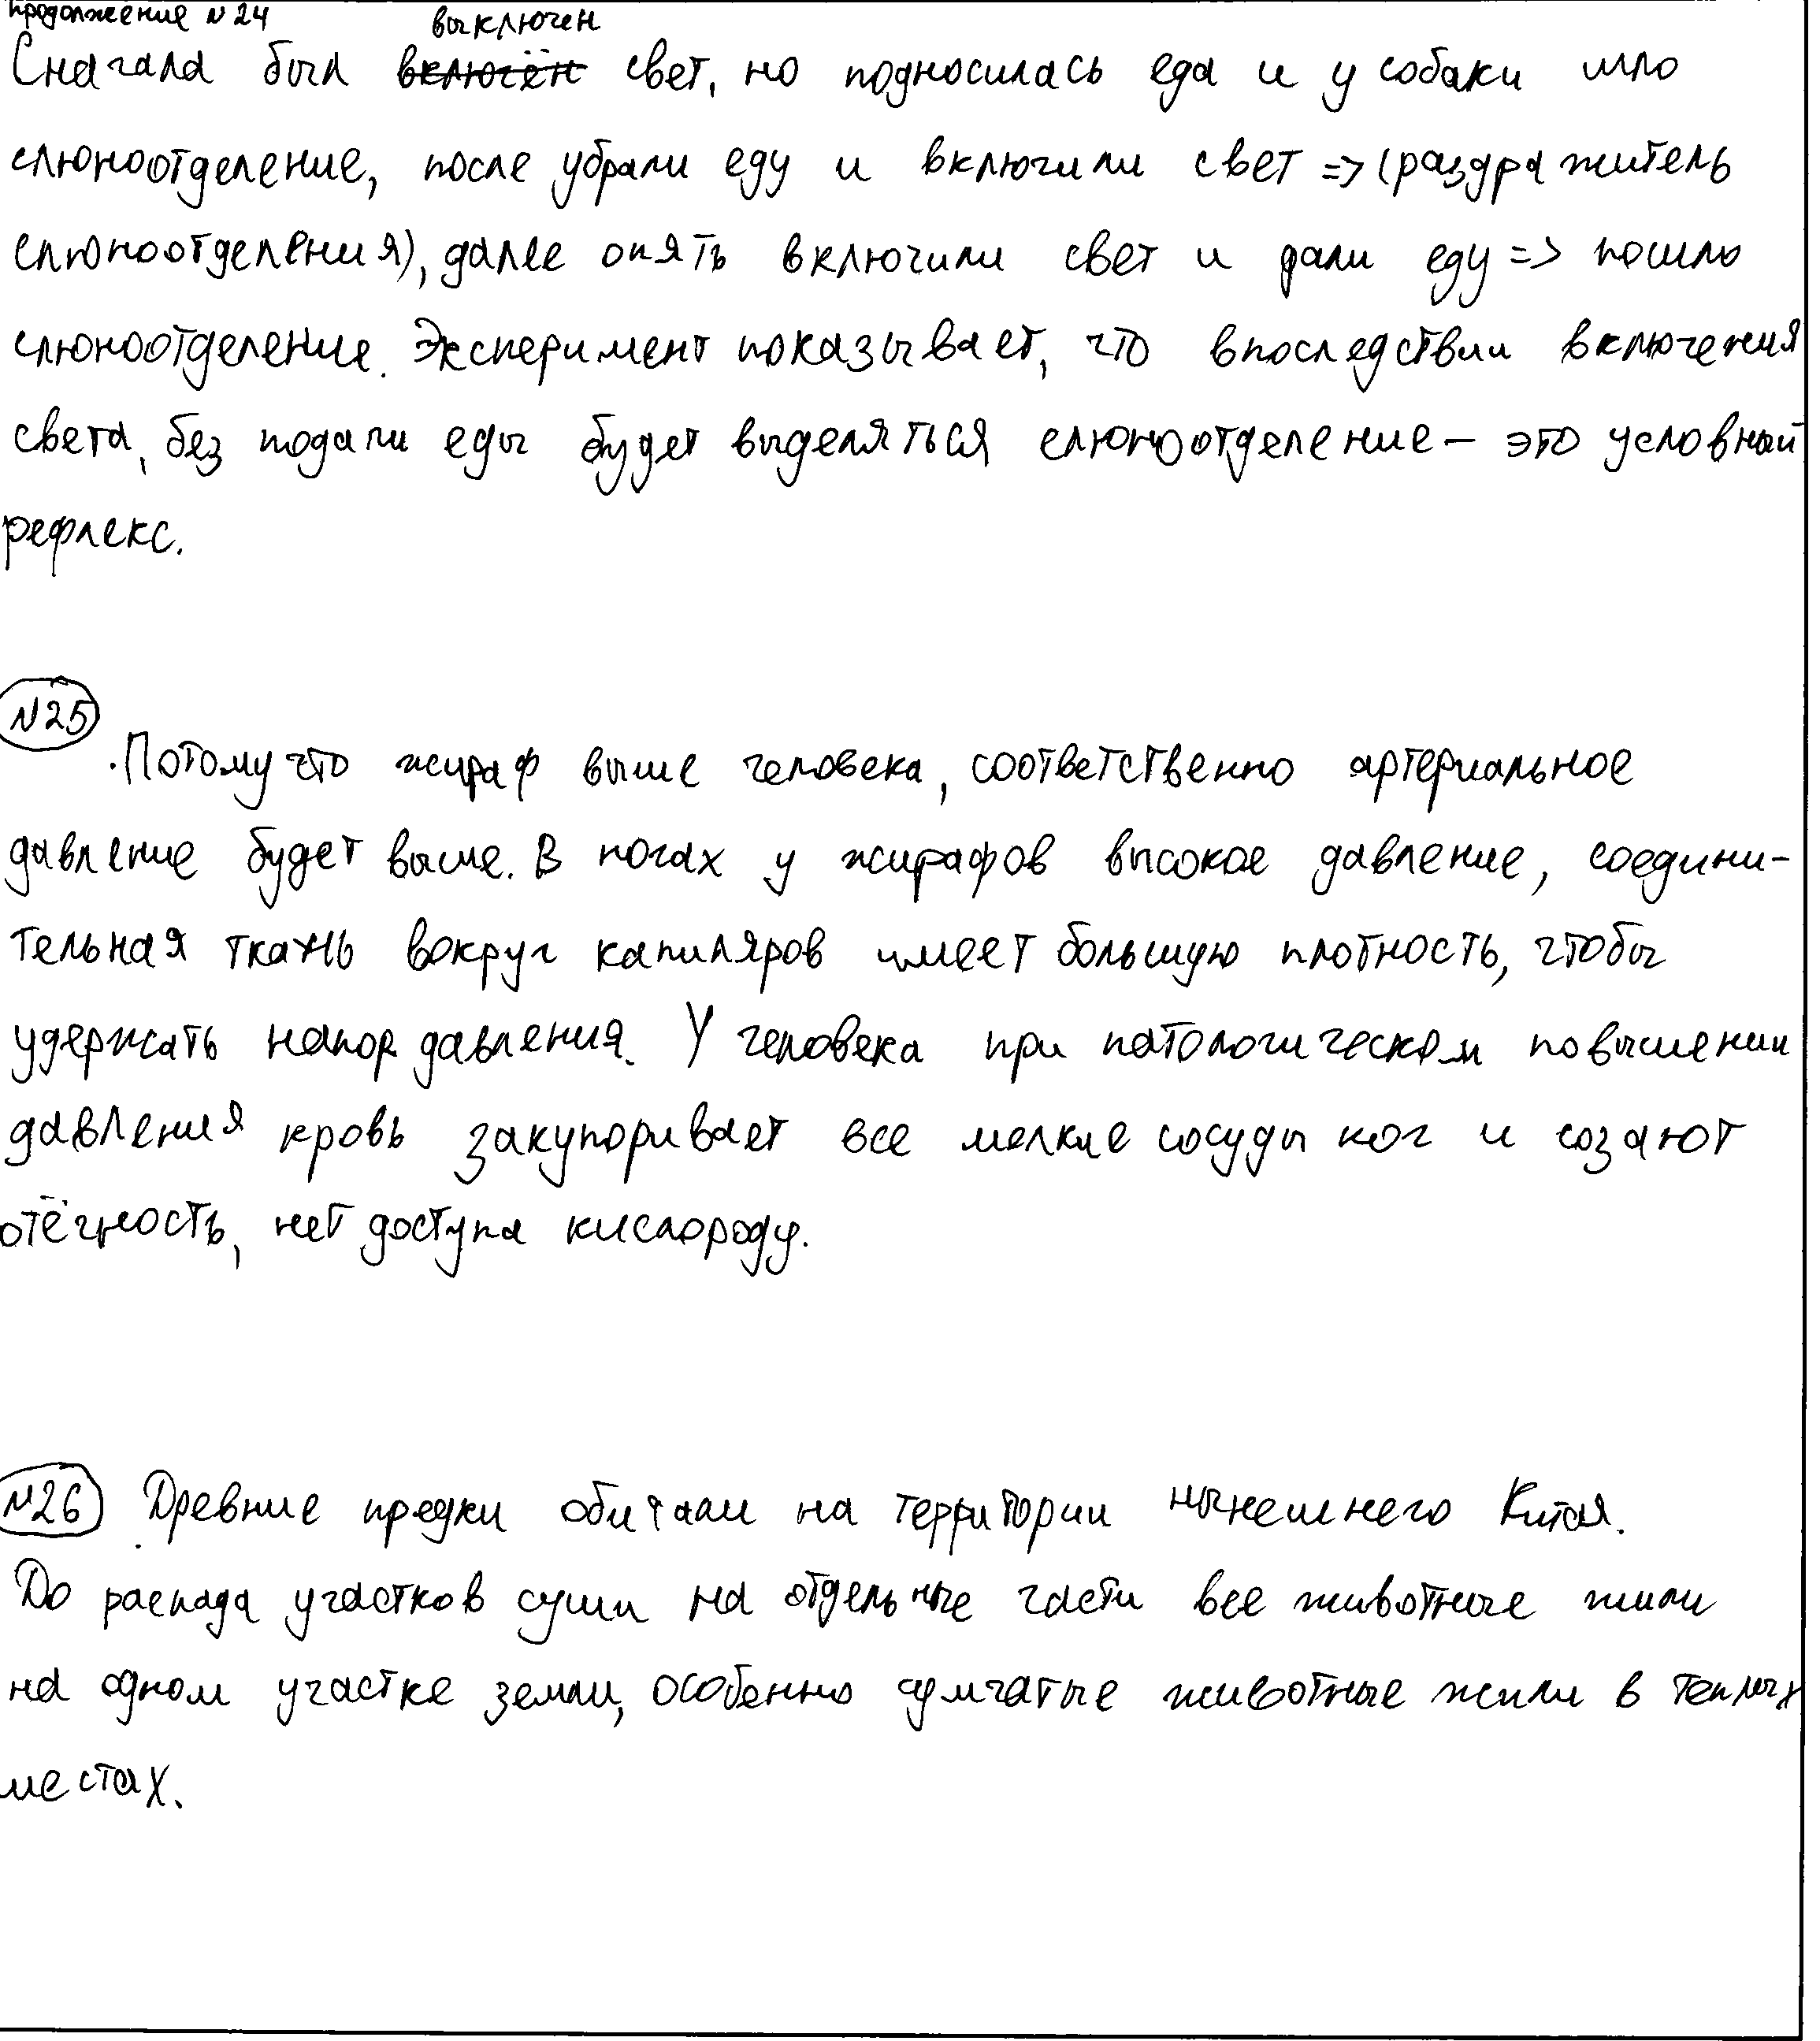 продолжение №24 выключен
Сначала был включён свет, но подносилась еда и у собаки шло
слюноотделение, после убрали еду и включили свет => (раздражитель
слюноотделения), далее опять включили свет и дали еду => пошло
слюноотделение. Эксперимент показывает, что впоследствии включения
света, без подачи еды будет выделяться слюноотделение – это условный
рефлекс.
№25
Потому что жираф выше человека, соответственно артериальное
давление будет выше. В ногах у жирафов высокое давление, соедини-
тельная ткань вокруг капиляров имеет большую плотность, чтобы
удержать напор давления. У человека при патологическом повышении
давления кровь закупоривает все мелкие сосуды ног и созают
отёчность, нет доступа кислороду.
№26 Древние предки обитали на территории нынешнего Китая.
До распада участков суши на отдельные части все животные жили
на одном участке земли, особенно сумчатые животные жили в теплых
местах.